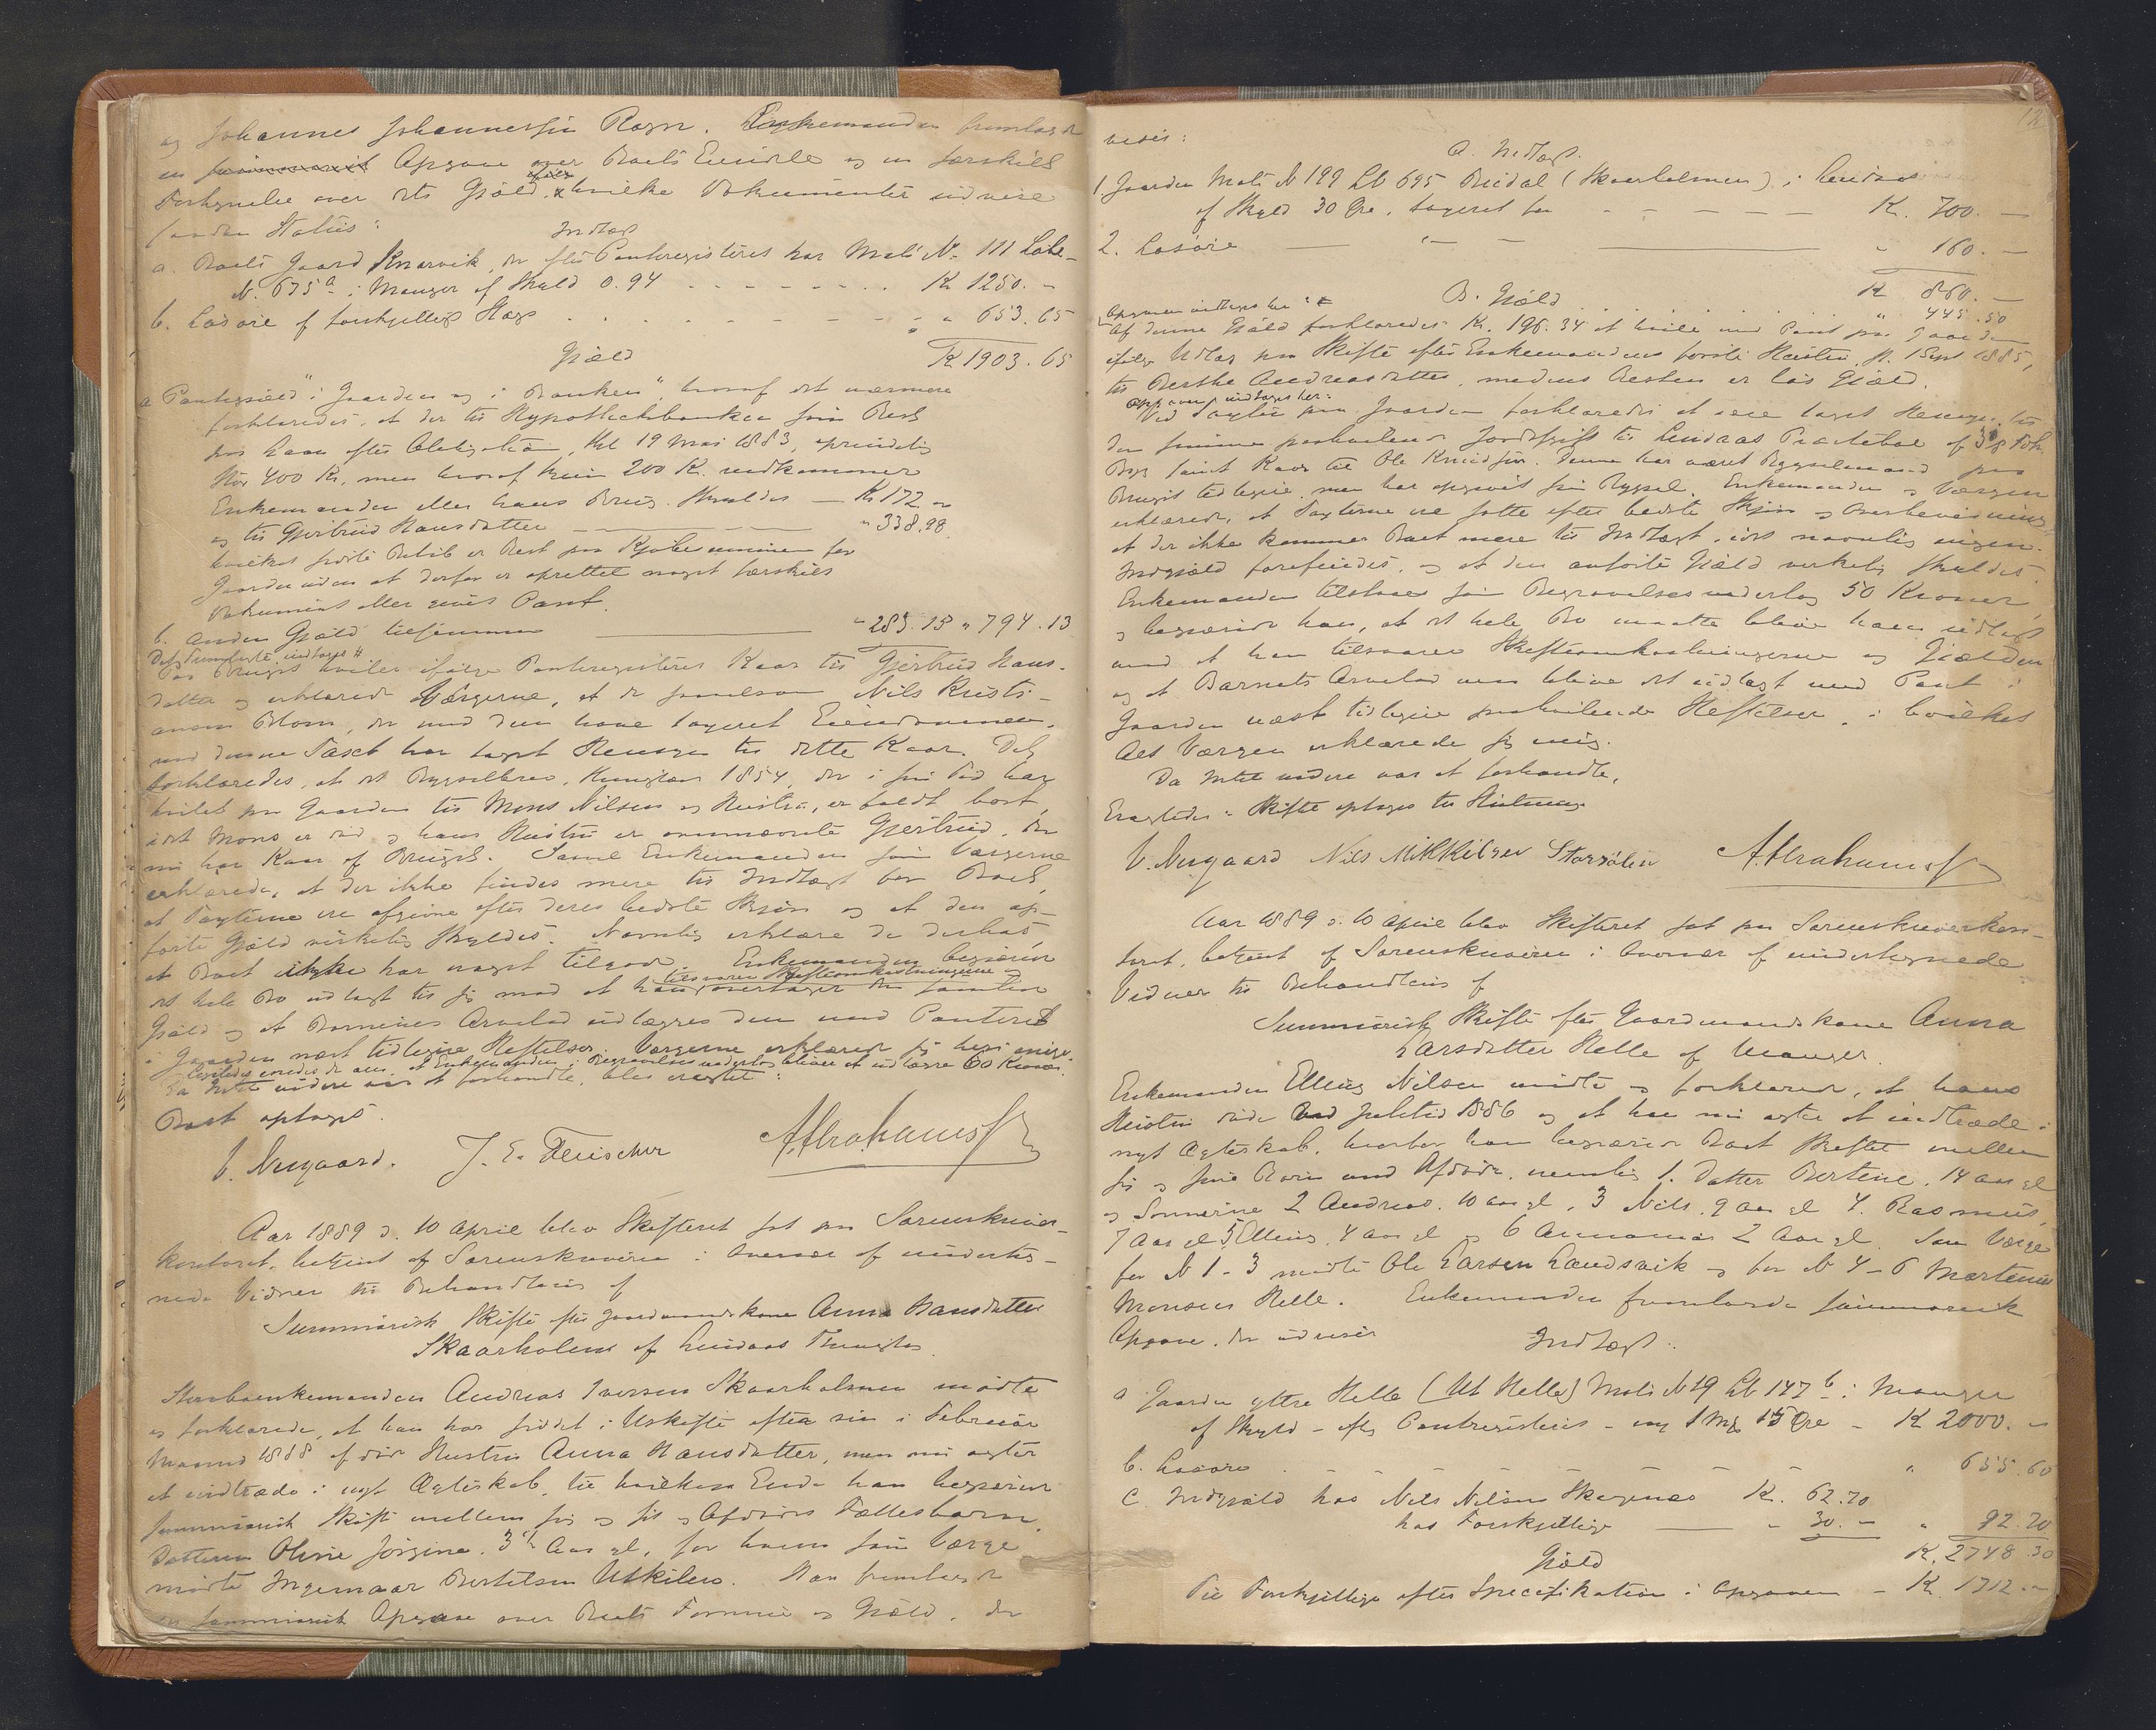 og Johannes Johannessen Ragn. Enkemanden fremlagde
en summarisk Opgave over Boets Eiendele og en særskilt
Fortegnelse over dets Gjæld, hvilke Dokumenter udvise
saadan Status:
Indtægt
a. Boets Gaard Knarvik, der efter Panteregisteret har Matr. N. 111 Løbe-
N. 675a i Manger af Skyld 0.94 - - - - Kr 1250. -
b. Løsøre af forskjelligt Slags . . . . - - - - " 653.65
Kr 1903.65
Gjæld
a Pantegjæld "i Gaarden og i Banken", hvoraf det nærmere
forklaredes, at der til Hypothekbanken som Rest
paa Laan efter Obligation, thl 19 Mai 1883, oprindelig
stor 400 Kr, men hvoraf kun 200 Kr. vedkommer
Enkemanden eller hans Brug. skyldes — Kr 172. "
og til Gjertrud Hansdatter — — — " 338.98.
hvilket sidste Beløb er Rest paa Kjøbesummen for
Gaarden uden at derfor er oprettet noget særskilt
Dokument eller givet Pant.
b. anden Gjæld tilsammen — " 283.15 " 794.13
Paa Bruget hviler ifølge Panteregisteret Kaar til Gjertrud Hans-
datter og erklærede Værgerne, at de saavelsom Nils Kristi-
ansen Blom, der med dem have taxeret Eiendommen,
ved denne Taxt har taget Hensyn til dette Kaar. Det
forklaredes, at det Bygselbrev, thinglæst 1854, der i sin Tid har
hvilet paa Gaarden til Mons Nilsen og Hustru, er faldt bort,
idet Mons er død og hans Hustru er ovennævnte Gjertrud, der
nu har Kaar af Bruget. Saavel Enkemanden som Værgerne
erklærede, at der ikke findes mere til Indtægt for Boet,
at Taxterne ere afgivne efter deres bedste Skjøn og at den op-
førte Gjæld virkelig skyldes. Navnlig erklære de derhos,
at Boet ikke har noget tilgode. Enkemanden begjærede
tilsvarer Skifteomkostningerne og
det hele Bo udlagt til sig mod at han overtager den samtlige
Gjæld og at Børnenes Arvelod udlægges dem med Panteret
i Gaarden næst tidligere Heftelser. Værgerne erklærede sig heri enige.
Ligeledes enedes de om, at Enkemanden i Begravelsesvederlag bliver at udlægge 60 Kroner.
Da Intet videre var at forhandle, blev eragtet:
Boet optages.
V. Nygaard. J. E. Fleischer A. Abrahamsen
Aar 1889 d. 10 April blev Skifteret sat paa Sorenskriver-
kontoret, betjent af Sorenskriveren i Overvær af underteg-
nede Vidner til Behandling af
Summarisk Skifte efter Gaardmandskone Anna Hansdatter
Skaarholmen af Lindaas Thinglag.
Stervboenkemanden Andreas Iversen Skaarholmen mødte
og forklarede, at han har siddet i Uskifte efter sin i Februar
Maaned 1888 afdøde Hustru Anna Hansdatter, men nu agter
at indtræde i nyt Ægteskab, til hvilken Ende han begjærede
summarisk Skifte mellem sig og sit og Afdødes Fællesbarn,
Datteren Oline Jørgine 3½ Aar gl, for hvem som Værge
mødte Ingemar Bertelsen Utkilen. Han fremlagde
en summarisk Opgave over Boets Formue og Gjæld, der
udvis:
A. Indtægt.
1. Gaarden Matr. N 199 Lb 695, (Skaarholmen) i Lindaas
af Skyld 30 Øre, taxeret for - - - - - Kr. 700. —
2. Løsøre — " — — " 160. —
Kr 860. —
B. Gjæld . . . . " 445.50
Opgaven indtages her
Af denne Gjæld forklaredes Kr. 196.34 at hvile med Pant paa Gaarden
ifølge Udlæg paa Skifte efter Enkemandens første Hustru, st. 1 Sept 1885,
til Berthe Andreasdatter, medens Resten er løs Gjæld.
Opgaven indtages her:
Ved Taxten paa Gaarden forklaredes at være taget Hensyn til
den samme paahvilende Jordafgift til Lindaas Præstebol af
Byg samt Kaar til Ole Knudsen. Denne har været Bygselmand paa
Bruget tidligere men har opgivet sin Bygsel. Enkemanden og Værgen
erklærede, at Taxterne ere satte efter bedste Skjøn og Overbevisning
at der ikke kommer Boet mere til Indtægt, idet navnlig ingen
Indgjæld forefindes, og at den anførte Gjæld virkelig skyldes.
Enkemanden tilstaaes som Begravelsesvederlag 50 Kroner,
og begjærede han, at det hele Bo maatte blive ham udlagt
mod at han tilsvarer Skifteomkostningerne og Gjælden
og at Barnets Arvelod maa blive det udlagt med Pant i
Gaarden næst tidligere paahvilende Heftelser, i hvilket
Alt Værgen erklærede sig enig.
Da Intet videre var at forhandle,
Eragtedes: Skiftet optages til Slutning.
V. Nygaard Nils Mikkelsen Storsølen A. Abrahamsen
Aar 1889 d. 10 April blev Skifteret sat paa Sorenskriverkon-
toret, betjent af Sorenskriveren i Overvær af undertegnede
Vidner til Behandling af
Summarisk Skifte efter Gaardmandskone Anna
Larsdatter Helle af Manger.
Enkemanden Elling Nilsen mødte og forklarede, at hans
Hustru døde ved Juletid 1886 og at han nu agter at indtræde i
nyt Ægteskab, hvorfor han begjærede Boet skiftet mellem
sig og sine Børn med Afdøde, nemlig 1. Datter Bertine, 14 aar gl
og Sønnerne 2 Andreas, 10 aar gl, 3 Nils, 9 aar gl 4. Rasmus,
7 Aar gl 5 Elling, 4 aar gl og 6 2 Aar gl. Som Værge
for N 1-3 mødte Ole Larsen Landsvik og for N 4-6 Martinus
Monsen Helle. Enkemanden fremlagde summarisk
Opgave, der udviser
Indtægt:
a Gaarden yttre Helle (Ut Helle) Matr. N 19 Lb 147b i Manger
af Skyld - efter Panteregisteret - ny 1 Mrk 15 Øre - Kr 2000. -
b. Løsøre . - - - - - " 655.60
c. Indgjæld hos Nils Nilsen Skagenæs Kr. 62.70
hos Forskjellige — " 30. - " 92.70
Kr. 2748.30
Gjæld
Til Forskjellige efter Specifikation i Opgaven - Kr 1712. -